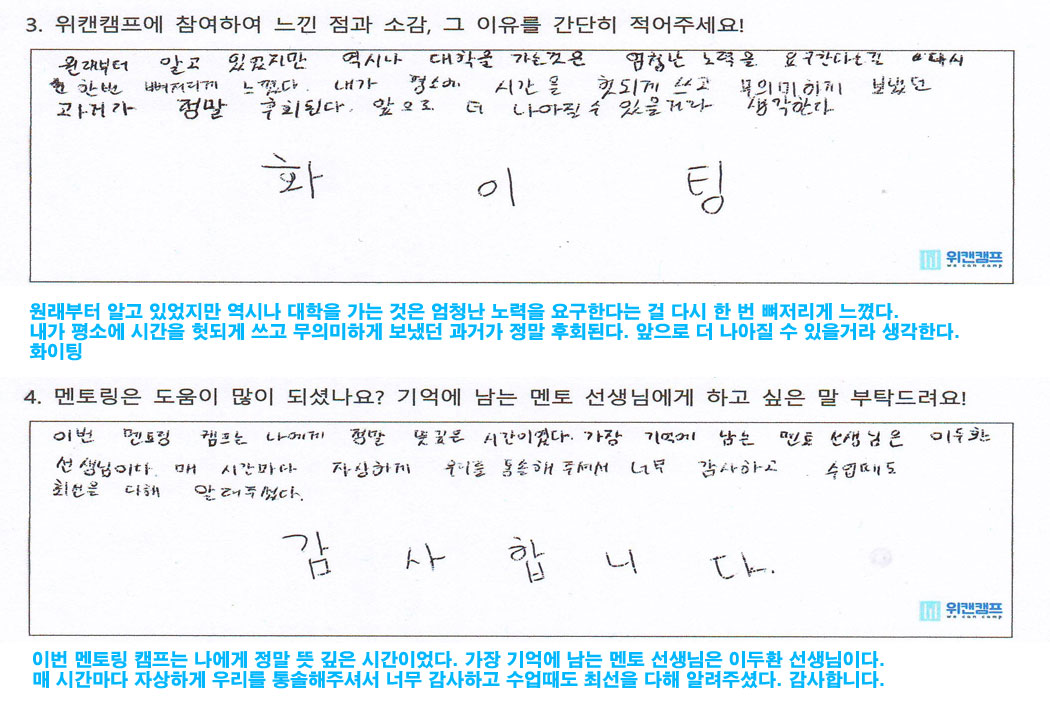 3. 위캔캠프에 참여하여 느낀 점과 소감, 그 이유를 간단히 적어주세요!
원래부터 알고 있었지만 역시나 대학을 가는것은 엄청난 노력을 요구한다는걸 다시
한번 뼈저리게 느꼈다. 내가 평소에 시간을 헛되게 쓰고 무의미하게 보냈던
과거가 정말 후회된다. 앞으로 더 나아질 수 있을거라 생각한다
화 이 팅
위캔캠프
we can camp
원래부터 알고 있었지만 역시나 대학을 가는 것은 엄청난 노력을 요구한다는 걸 다시 한 번 뼈저리게 느꼈다.
내가 평소에 시간을 헛되게 쓰고 무의미하게 보냈던 과거가 정말 후회된다. 앞으로 더 나아질 수 있을거라 생각한다.
화이팅
4. 멘토링은 도움이 많이 되셨나요? 기억에 남는 멘토 선생님에게 하고 싶은 말 부탁드려요!
이번 멘토링 캠프는 나에게 정말 뜻깊은 시간이였다. 가장 기억에 남는 멘토 선생님은 이두환
선생님이다. 매 시간마다 자상하게 우리를 통솔해주셔서 너무 감사하고 수업때도
최선을 다해 알려주셨다.
감 사 합 니 다.
위캔캠프
we can camp
이번 멘토링 캠프는 나에게 정말 뜻 깊은 시간이었다. 가장 기억에 남는 멘토 선생님은 이두환 선생님이다.
매 시간마다 자상하게 우리를 통솔해주셔서 너무 감사하고 수업때도 최선을 다해 알려주셨다. 감사합니다.